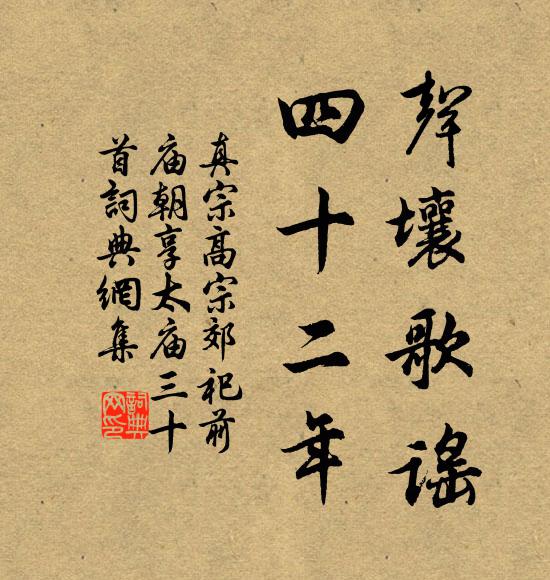 擊壤歌謠
四十二年
真宗高宗郊祀前
庙朝享太庙三十
首詞典網集
詞典
网印